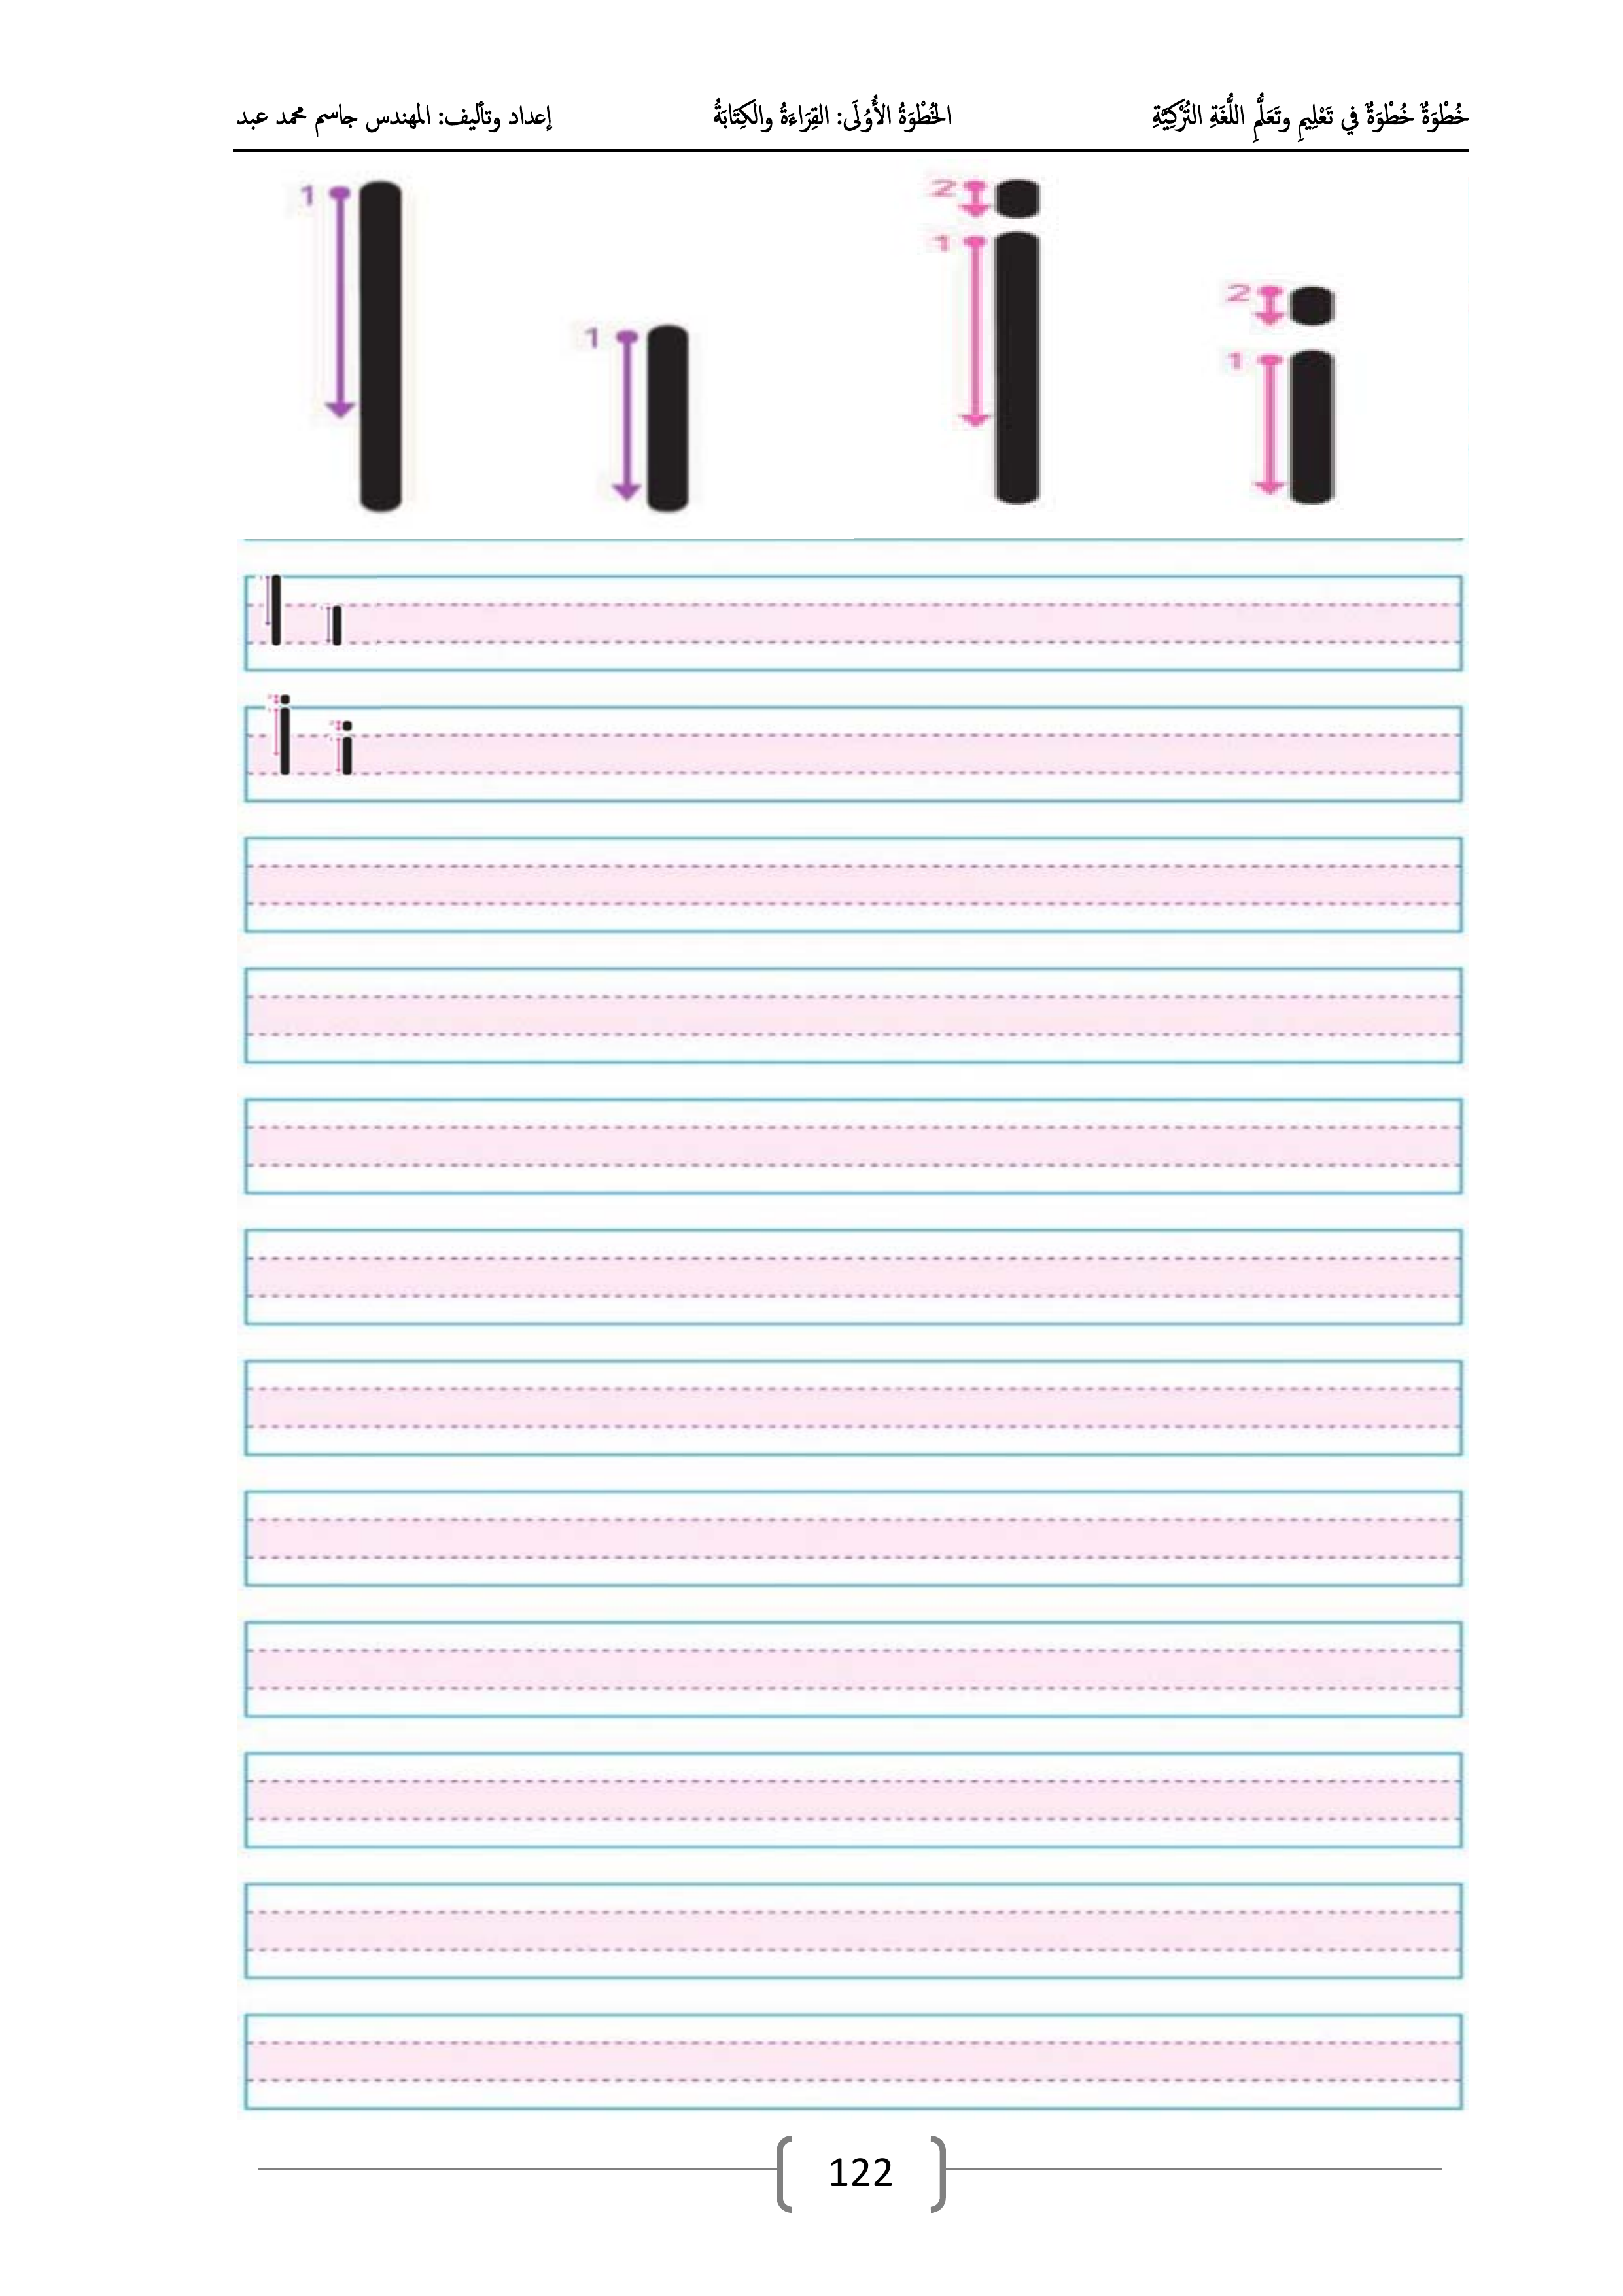 خُطْوَةٌ خُطْوَةٌ في تَعْلِيمِ وتَعَلُّمِ اللُّغَةِ التُرْكِيَّةِ الخُطْوَةُ الأُوُلَى: القِرَاءَةُ والكِتَابَةُ إعداد وتأليف: المهندس جاسم محمد عبد
1 I 1 ı 2 1 İ 2 1 i
I ı
İ i
122